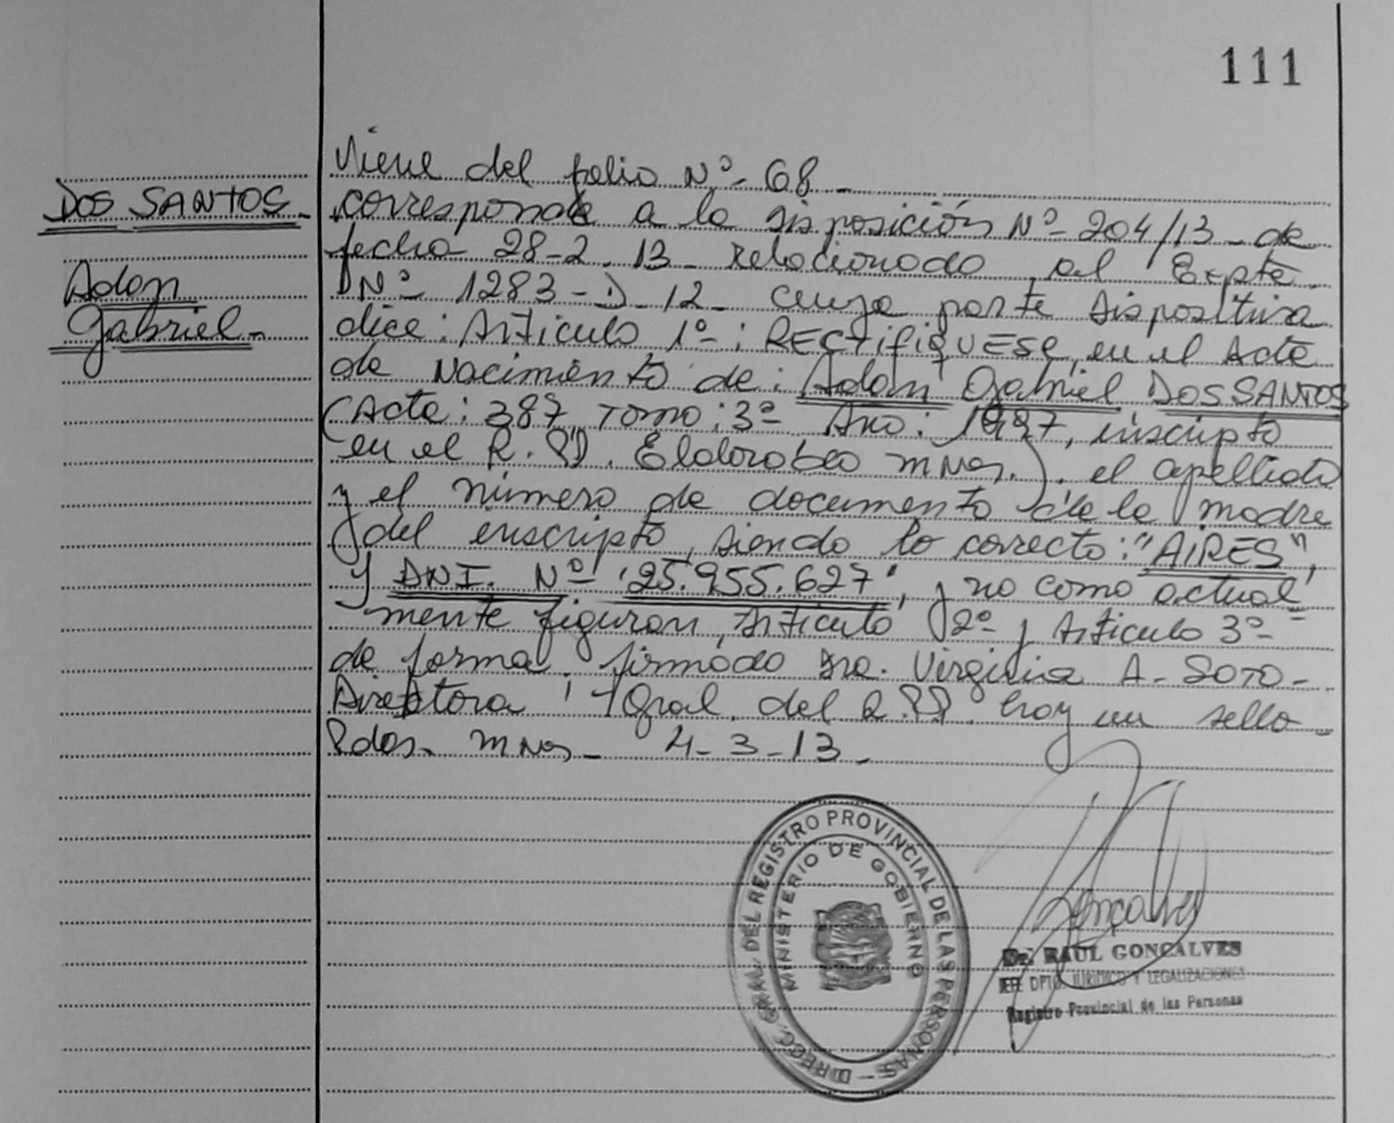 111
Viene del folio Nº- 68_
DOS SANTOS_
corresponde a la disposición Nº- 204/13_ de
fecha 28-2_13_ relacionado al Expte_
Adan
Nº- 1283-D_12_ cuya parte dispositiva
Gabriel_
dice: Articulo 1º-: RECTIFIQUESE, en el Acta
de Nacimiento de: Adan Gabriel DOS SANTOS
(Acta: 387, Tomo: 3º Año: 1997, inscripto
en el R.PP. Eldorado Mnes.). el apellido
y el número de documento de la madre
del inscripto, siendo lo correcto: "AIRES",
y DNI. Nº "25.955.627", y no como actual-
mente figuran, Articulo 2º- y Articulo 3º-
de forma. firmado Dra. Virginia A- SOTO-
Directora Gral. del R.PP. hay un sello_
Pdas. Mnes_ 4-3-13_
DIRECC. GRAL. DEL REGISTRO PROVINCIAL DE LAS PERSONAS -
MINISTERIO DE GOBIERNO
Gonçalves
Dr. RAUL GONCALVES
JEFE DPTO. JURIDICO Y LEGALIZACIONES
Registro Provincial de las Personas